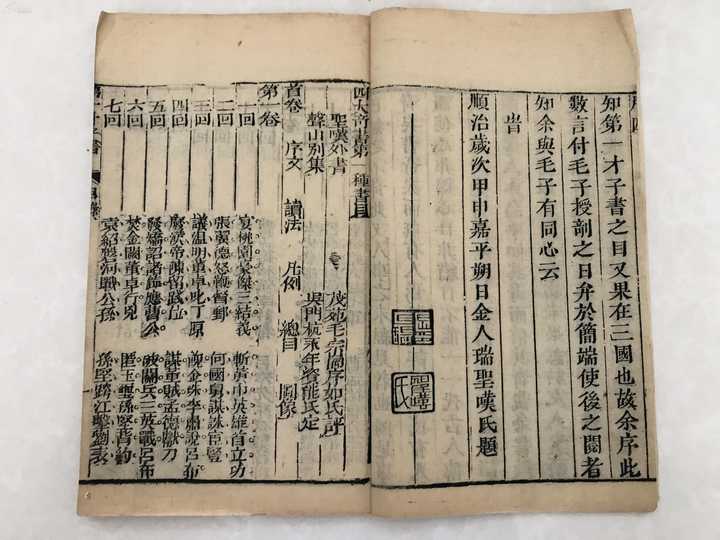 知第一才子書之目又果在三國也故余序此
數言付毛子授剞之日弁於簡端使後之閱者
知余與毛子有同心云
旹
順治歲次甲申嘉平朔日金人瑞聖嘆氏題
四大奇書第一種書目
聖嘆外書 茂苑毛宗崗序始氏評
聲山別集 吳門杭永年資能氏定
首卷 序文 讀法 凡例 總目 圖像
第一卷
一回 宴桃園豪傑三結義 斬黃巾英雄首立功
二回 張翼德怒鞭督郵 何國舅謀誅宦豎
三回 議溫明董卓叱丁原 餽金珠李肅說呂布
四回 廢漢帝陳留踐位 謀董賊孟德獻刀
五回 發矯詔諸鎮應曹公 破關兵三英戰呂布
六回 焚金闕董卓行兇 匿玉璽孫堅背約
七回 袁紹磐河戰公孫 孫堅跨江擊劉表
第一才子書 目錄